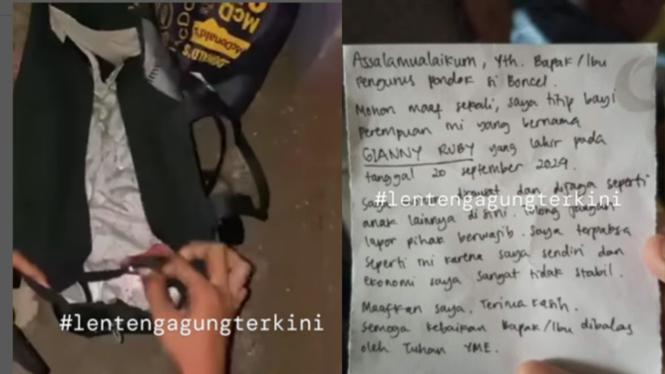 McD
McDonald's
#lentengagungterkini
Assalamualaikum, Yth. Bapak/Ibu
Pengurus pondok Si Boncel.
Mohon maaf sekali, saya titip bayi
perempuan ini yang bernama
GIANNY RUBY yang lahir pada
tanggal 20 september 2024.
dirawat dan dijaga seperti
#lentengagungterkini
anak lainnya disini. Tolong jangan
lapor pihak berwajib. Saya terpaksa
seperti ini karena saya sendiri dan
ekonomi saya sangat tidak stabil.
Maafkan saya. Terima kasih.
Semoga kebaikan Bapak/Ibu dibalas
oleh Tuhan YME.